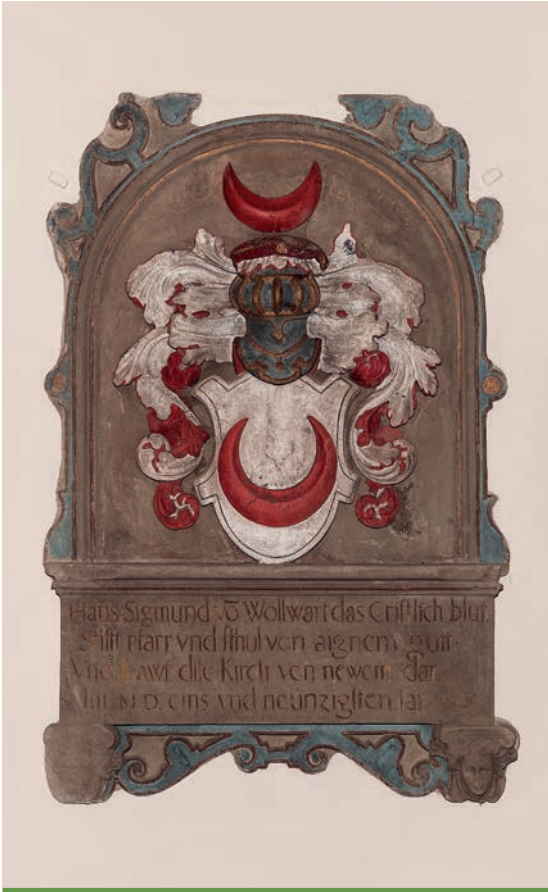 Hans Sigmund vō Wollwart das Cristlich blut.
Stifft pfarr vnd schul von aignem gutt
Vnd bawt dise Kirch von newem dar
Im M D. eins vnd neunzigsten Jar